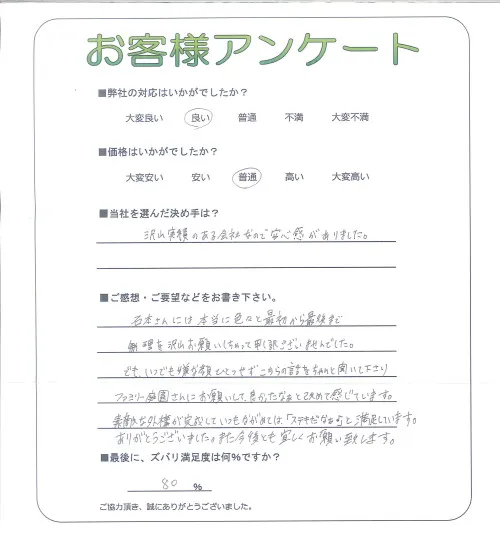 お客様アンケート
■弊社の対応はいかがでしたか？
大変良い 良い 普通 不満 大変不満
■価格はいかがでしたか？
大変安い 安い 普通 高い 大変高い
■当社を選んだ決め手は？
沢山実積のある会社なので安心感がありました。
■ご感想・ご要望などをお書き下さい。
石本さんには本当に色々と最初から最後まで
無理を沢山お願いしちゃって申し訳ございませんでした。
でも、いつでも嫌な顔ひとつせずこちらの話をちゃんと聞いて下さり
ファミリー庭園さんにお願いして、良かったなぁと改めて感じています。
素敵な外構が完成していつもながめては、「ステキだなぁ」と満足しています。
ありがとうございました。また今後とも宜しくお願い致します。
■最後に、ズバリ満足度は何%ですか？
80 %
ご協力頂き、誠にありがとうございました。